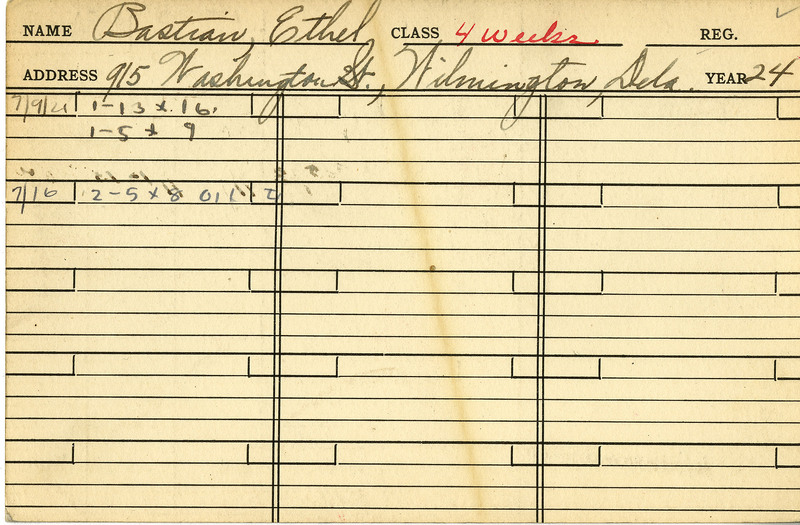 NAME Bastian, Ethel CLASS 4 weeks REG.
ADDRESS 915 Washington St., Wilmington, Dela. YEAR 24
7/9/21 1-13 x 16.
1-5 x 9
7/16 2-5 x 8